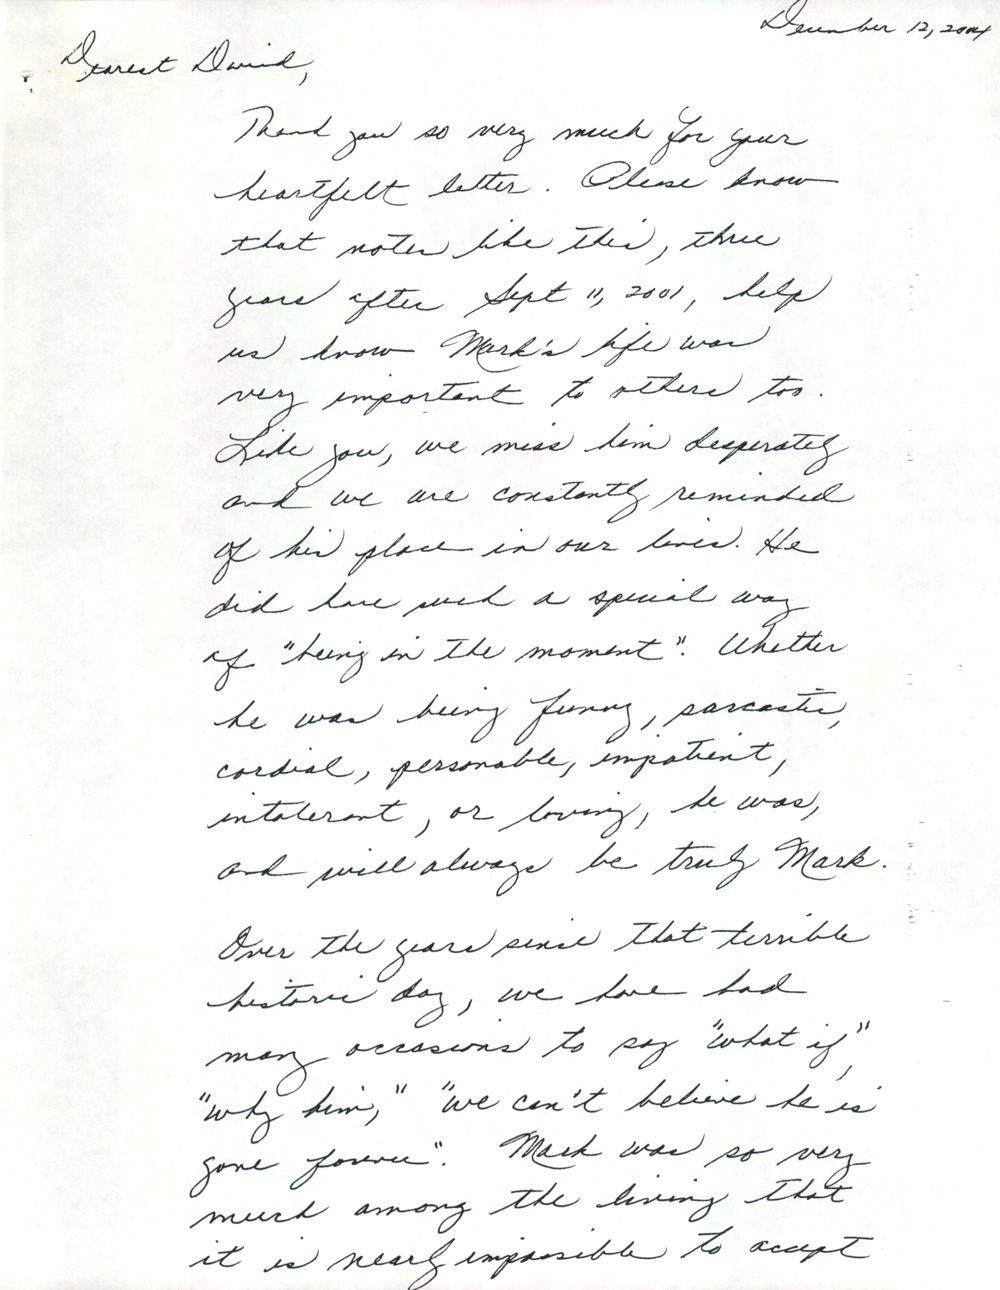 December 12, 2004
Dearest David,
Thank you so very much for your
heartfelt letter. Please know
that notes like this, three
years after Sept 11, 2001, help
us know Mark's life was
very important to others too.
Like you, we miss him desperately
and we are constantly reminded
of his place in our lives. He
did have such a special way
of "being in the moment". Whether
he was being funny, sarcastic,
cordial, personable, impatient,
intolerant, or loving, he was,
and will always be truly Mark.
Over the years since that terrible
historic day, we have had
many occasions to say "what if",
"why him," "we can't believe he is
gone forever". Mark was so very
much among the living that
it is nearly impossible to accept